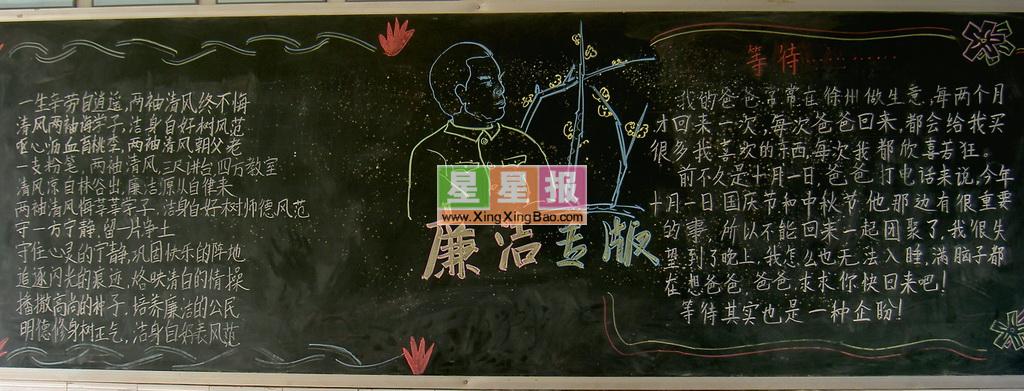 一生辛劳自逍遥,两袖清风终不悔
清风两袖诲学子,洁身自好树风范
两袖清风朝父老
一支粉笔,两袖清风,三尺讲台,四方教室
清风凉自林谷出,廉洁源从自律来
两袖清风侮莘莘学子,洁身自好树师德风范
守一方宁静,留一片净土
守住心灵的宁静,巩固快乐的阵地
追逐闪光的痕迹,烙映清白的情操
播撒高尚的种子,培养廉洁的公民
明德修身树正气,洁身自好表风范
星星报
www.XingXingBao.com
廉洁专版
等待............
我的爸爸,常常在徐州做生意,每两个月
才回来一次,每次爸爸回来,都会给我买
很多我喜欢的东西,每次我都欣喜若狂。
前不久是十月一日,爸爸打电话来说,今年
十月一日国庆节和中秋节他那边有很重要
的事,所以不能回来一起团聚了,我很失
望,到了晚上,我怎么也无法入睡,满脑子都
在想爸爸,爸爸,求求你快回来吧!
等待其实也是一种企盼!